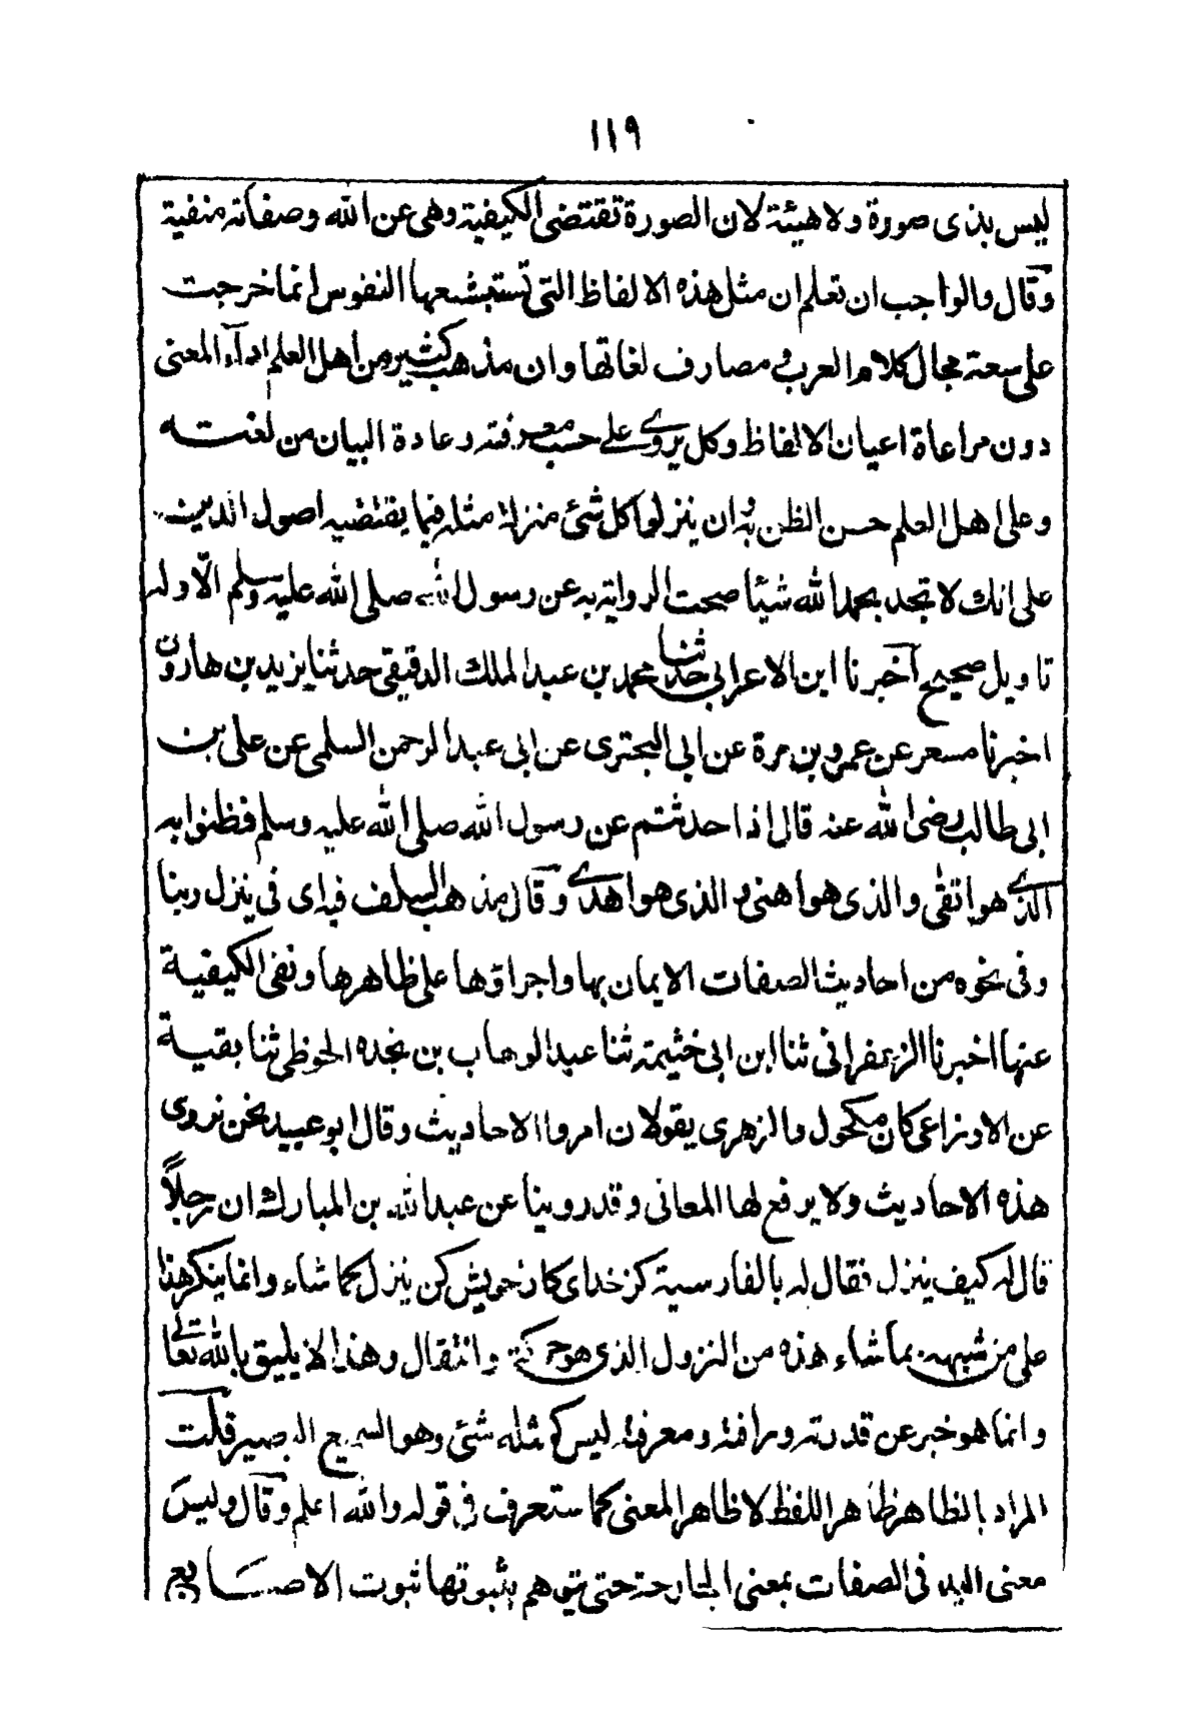 ١١٩
ليس بذى صورة ولا هيئة لان الصورة تقتضى الكيفية وهى عن الله وصفاته منفية
وقال والواجب ان تعلم ان مثل هذه الالفاظ التى تستبشعها النفوس انما خرجت
على سعة مجال كلام العرب و مصارف لغاتها وان مذهب كثير من اهل العلم اداء المعنى
دون مراعاة اعيان الالفاظ وكل يروى على حسب معرفته وعادة البيان من لغته
وعلى اهل العلم حسن الظن به وان ينزلوا كل شئ منزلة مثله فيما يقتضيه اصول الدين
على انك لا تجد بحمد الله شيئا صحت الرواية به عن رسول الله صلى الله عليه وسلم الّا وله
تاويل صحيح آخبرنا ابن الاعرابى حدثنا محمد بن عبد الملك الدقيقى حدثنا يزيد بن هارون
اخبرنا مسعر عن عمرو بن مرة عن ابى البخترى عن ابى عبد الرحمن السلمى عن على بن
ابى طالب رضى الله عنه قال اذا حدثتم عن رسول الله صلى الله عليه وسلم فظنوا به
الذى هو اتقى والذى هو اهنى والذى هو اهدى وقال مذهب السلف فيه اى فى ينزل ربنا
وفى نحوه من احاديث الصفات الايمان بها واجراؤها على ظاهرها ونفى الكيفية
عنها اخبرنا الزعفرانى ثنا ابن ابى خثيمة ثنا عبد الوهاب بن نجده الحوطى ثنا بقية
عن الاوزاعى كان مكحول والزهرى يقولان امروا الاحاديث وقال ابو عبيد نحن نروى
هذه الاحاديث ولا يرفع لها المعانى وقد روينا عن عبد الله بن المبارك ان رجلاً
قال له كيف ينزل فقال له بالفارسية كز خداى كار خويش كن ينزل كما شاء وانما ينكر هذا
على من شبهه بما شاء هذه من النزول الذى هو حركة وانتقال وهذا لا يليق بالله تعالى
وانما هو خبر عن قدرته ورافته ومعرفة ليس كمثله شئ وهو السميع البصير قلت
المراد بالظاهر ظاهر اللفظ لا ظاهر المعنى كما ستعرف فى قوله والله اعلم وقال وليس
معنى اليد فى الصفات بمعنى الجارحة حتى يتوهم بثبوتها ثبوت الاصابع